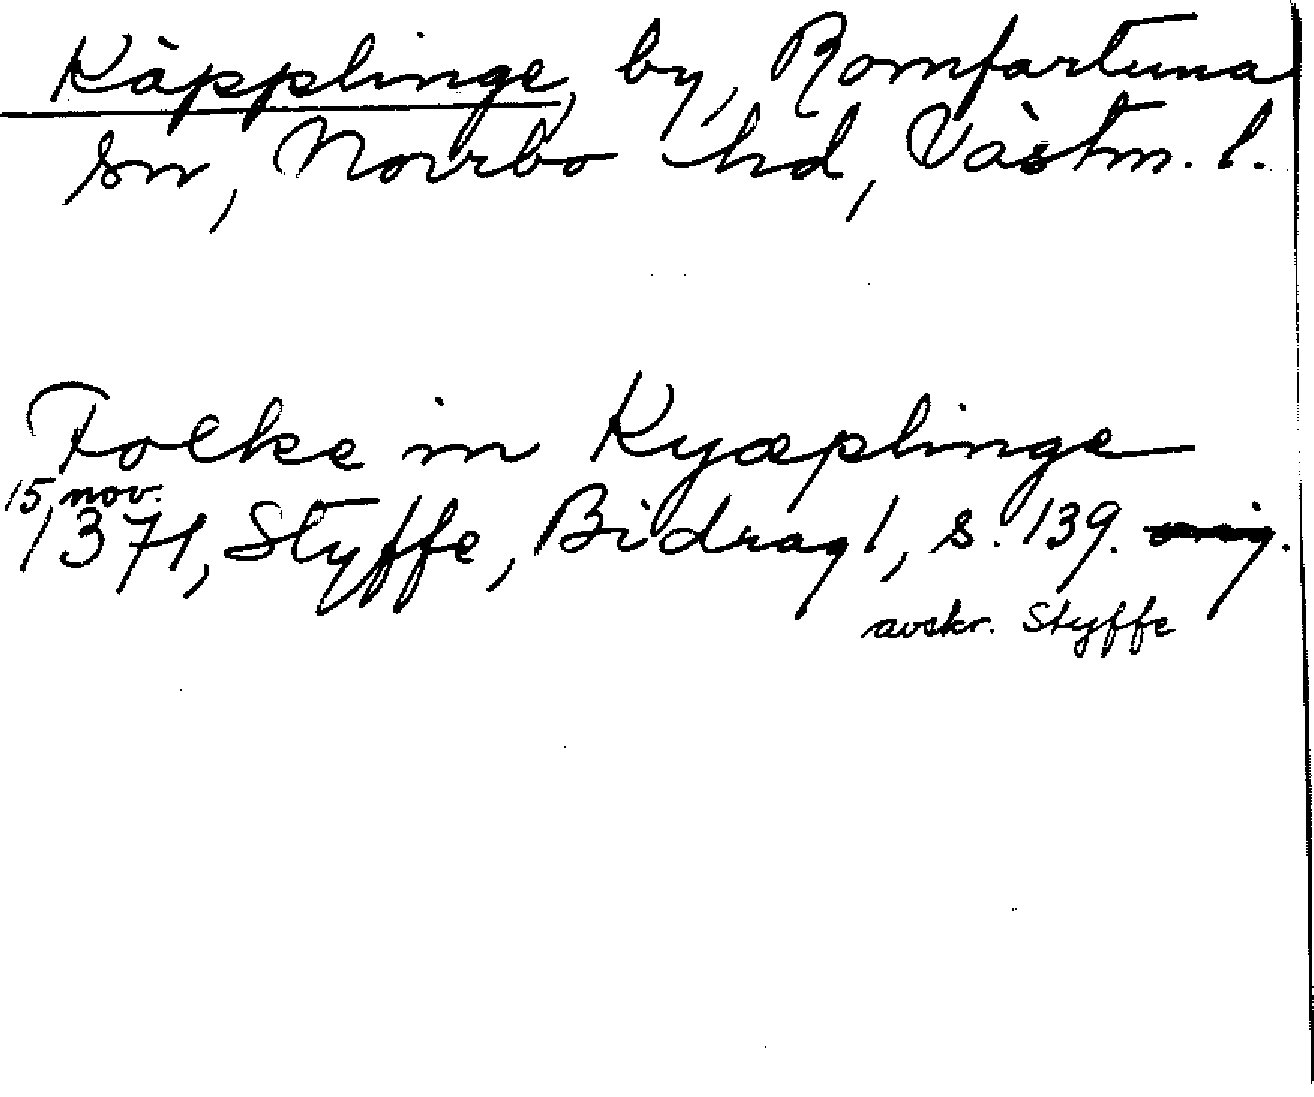 Käpplinge, by, Romfartuna
sn, Norrbo hd, Västm. l.
Folke in Kyæplinge
15 nov.
1371, Styffe, Bidrag 1, s. 139. orig.
avskr. Styffe